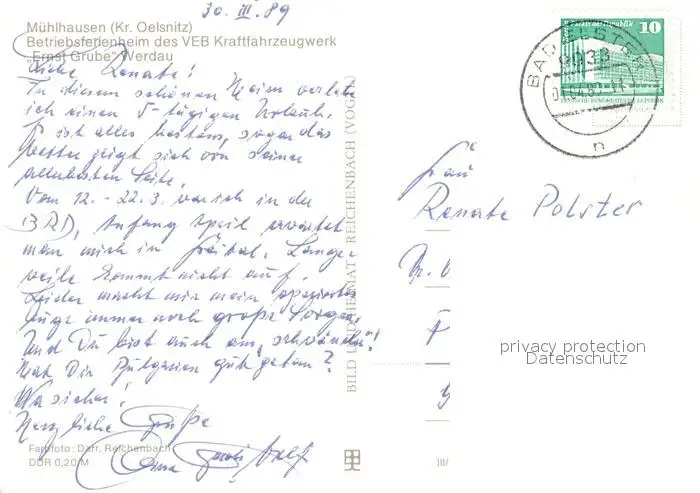 30. III. 89
Mühlhausen (Kr. Oelsnitz)
Betriebsferienheim des VEB Kraftfahrzeugwerk
„Ernst Grube" Werdau
Liebe Renate!
In diesem schönen Heim verlebe
ich einen 5-tägigen Urlaub.
Es ist alles bestens, sogar das
Wetter zeigt sich von seiner
allerbesten Seite.
Vom 12. - 22.3. war ich in der
BRD, Anfang April erwartet
man mich in Freital. Lange-
weile kommt nicht auf.
Leider macht mir mein operiertes
Auge immer noch große Sorgen.
Und Du bist auch am
Hat Dir Bulgarien gut getan?
Na sicher!
Herzliche Grüße
Deine
Farbfoto: Darr, Reichenbach
DDR 0,20 M
BILD UND HEIMAT REICHENBACH (VOGTL)
III/
10
BAD ELSTER
9933
n
DEUTSCHE DEMOKRATISCHE REPUBLIK
Frau
Renate Polster
privacy protection
Datenschutz